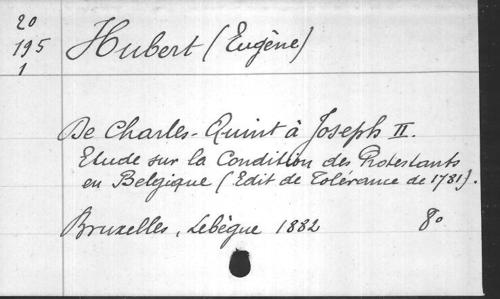 20
195
1
Hubert (Eugène)
De Charles-Quint à Joseph II.
Etude sur la Condition des Protestants
en Belgique (Edit de Tolérance de 1781).
Bruxelles, Lebègue 1882 8°